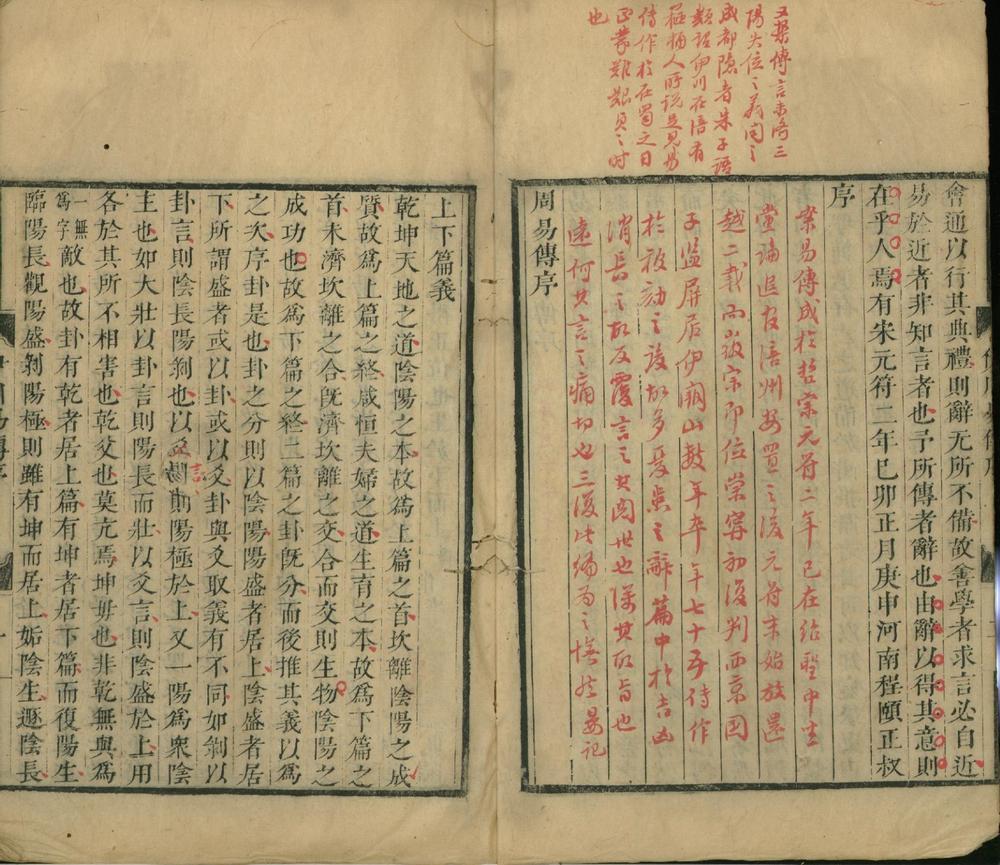 又槩傳言未濟三
陽失位之義聞之
成都隱者朱子語
類謂伊川在涪有
箍桶人所說是見易
傳作於在蜀之日
正蒙難艱貞之時
也
會通以行其典禮則辭无所不備故善學者求言必自近
易於近者非知言者也予所傳者辭也由辭以得其意則
在乎人焉有宋元符二年巳卯正月庚申河南程頤正叔
序
案易傳成於哲宗元符二年已在紹聖中坐
黨論追投涪州安置之後元符末始放還
越二載而徽宗即位崇寧初復判西京國
子監屏居伊闕山數年卒年七十五傳作
於被劾之後故多憂患之辭篇中於吉凶
消長之故反覆言之其國世也深其取旨也
遠何其言之痛切也三復此編為之憮然晏記
周易傳序
上下篇義
乾坤天地之道陰陽之本故爲上篇之首坎離陰陽之成
質故爲上篇之終咸恒夫婦之道生育之本故爲下篇之
首未濟坎離之合旣濟坎離之交合而交則生物陰陽之
成功也故爲下篇之終二篇之卦旣分而後推其義以爲
之次序卦是也卦之分則以陰陽陽盛者居上陰盛者居
下所謂盛者或以卦或以爻卦與爻取義有不同如剝以
卦言則陰長陽剝也以爻言則陽極於上又一陽爲衆陰
主也如大壯以卦言則陽長而壯以爻言則陰盛於上用
各於其所不相害也乾父也莫亢焉坤毋也非乾無與爲
一無爲字敵也故卦有乾者居上篇有坤者居下篇而復陽生
臨陽長觀陽盛剝陽極則雖有坤而居上姤陰生遯陰長